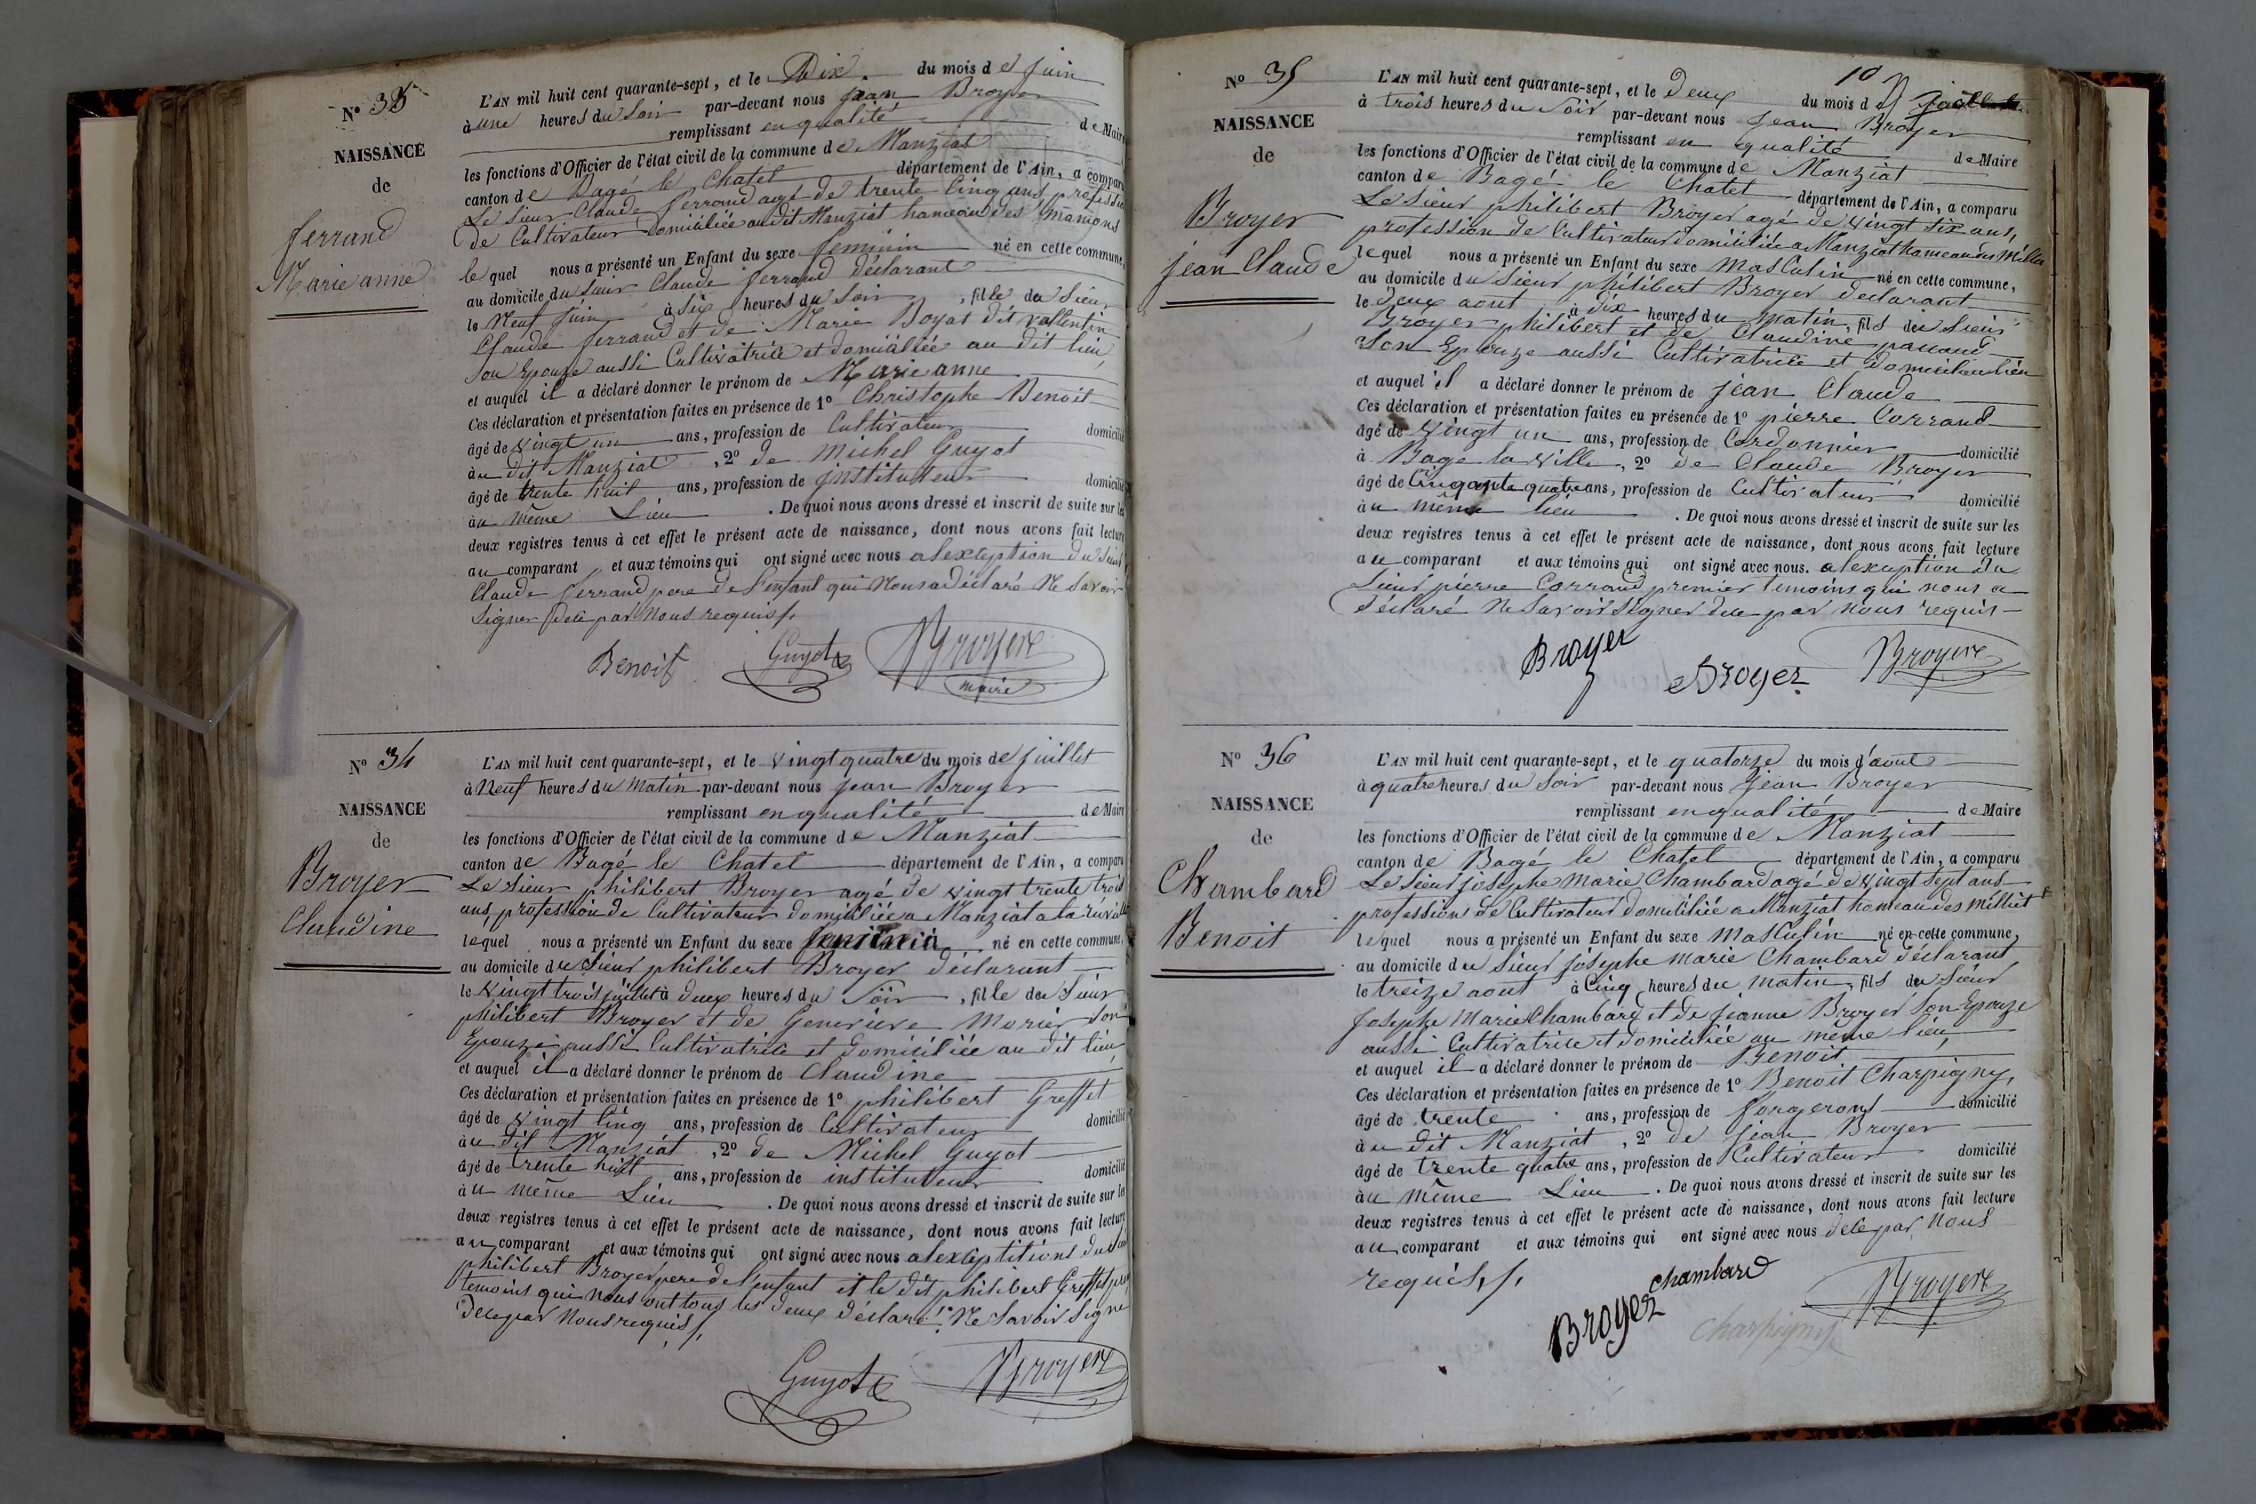 N° 33
NAISSANCE
de
ferrand
Marie anne
L'AN mil huit cent quarante-sept, et le Dix du mois de Juin
à une heures du Soir par-devant nous jean Broyer
remplissant en qualité de Maire
les fonctions d'Officier de l'état civil de la commune de Manziat
canton de Bagé le Chatel département de l'Ain, a comparu
Le Sieur Claude ferrand agé de trente Cinq ans, professio
de Cultivateur domiciliée au dit Manziat hameau des Mamons
lequel nous a présenté un Enfant du sexe feminin né en cette commune,
au domicile du Sieur Claude ferrand déclarant
le Neuf Juin à Six heures du Soir, fille du Sieur
Claude ferrand et de Marie Boyat dit vallentin
Son Epouze aussi Cultivatrice et domiciliée au dit lieu,
et auquel il a déclaré donner le prénom de Marie anne
Ces déclaration et présentation faites en présence de 1° Christophe Benoit
âgé de vingt un ans, profession de Cultivateur domicilié
àu dit Manziat, 2° de Michel Guyot
âgé de trente huit ans, profession de jnstituteur domicilié
àu même Lieu. De quoi nous avons dressé et inscrit de suite sur les
deux registres tenus à cet effet le présent acte de naissance, dont nous avons fait lecture
au comparant et aux témoins qui ont signé avec nous alexception du Sieur
Claude ferrand pere de l'enfant qui Nous a déclaré Ne Savoir
Signer dele par Nous requis
Benoit Guyot Broyer
maire
N° 34
NAISSANCE
de
Broyer
Claudine
L'AN mil huit cent quarante-sept, et le vingt quatre du mois de juillet
à Neuf heures du Matin par-devant nous jean Broyer
remplissant en qualité de Maire
les fonctions d'Officier de l'état civil de la commune de Manziat
canton de Bagé le Chatel département de l'Ain, a comparu
Le Sieur philibert Broyer agé de vingt trente trois
ans, profession de Cultivateur domiciliée a Manziat a la
lequel nous a présenté un Enfant du sexe feminin né en cette commune,
au domicile du Sieur philibert Broyer déclarant
le vingt trois juillet à deux heures du Soir, fille du Sieur
philibert Broyer et de Genevieve Morier Son
Epouze aussi Cultivatrice et domiciliée au dit lieu
et auquel il a déclaré donner le prénom de Claudine
Ces déclaration et présentation faites en présence de 1° philibert Greffet
âgé de vingt Cinq ans, profession de Cultivateur domicilié
àu dit Manziat, 2° de Michel Guyot
âgé de trente huit ans, profession de instituteur domicilié
àu même Lieu. De quoi nous avons dressé et inscrit de suite sur les
deux registres tenus à cet effet le présent acte de naissance, dont nous avons fait lecture
au comparant et aux témoins qui ont signé avec nous alexceptitions du
philibert Broyer pere de l'enfant et le dit philibert Greffet
temoins qui nous ont tous les deux déclaré Ne Savoir Signe
dele par Nous requis
Guyot Broyer
N° 35
NAISSANCE
de
Broyer
jean Claude
L'AN mil huit cent quarante-sept, et le Deux du mois d
à trois heures du Soir par-devant nous jean Broyer
remplissant en qualité de Maire
les fonctions d'Officier de l'état civil de la commune de Manziat
canton de Bagé le Chatel département de l'Ain, a comparu
Le Sieur philibert Broyer agé de vingt Six ans,
profession de Cultivateur domiciliée a Manziat hameau des
lequel nous a présenté un Enfant du sexe masculin né en cette commune,
au domicile du Sieur philibert Broyer déclarant
le deux aout à dix heures du matin, fils du Sieur
Broyer philibert et de Claudine
Son Epouze aussi Cultivatrice et
et auquel il a déclaré donner le prénom de jean Claude
Ces déclaration et présentation faites en présence de 1° pierre Corrand
âgé de vingt un ans, profession de Cordonnier domicilié
à Bage la ville, 2° de Claude Broyer
âgé de Cinqante quatre ans, profession de Cultivateur domicilié
àu même lieu. De quoi nous avons dressé et inscrit de suite sur les
deux registres tenus à cet effet le présent acte de naissance, dont nous avons fait lecture
au comparant et aux témoins qui ont signé avec nous. alexception du
Sieur pierre Corrand premier temoins qui nous a
déclaré Ne Savoir Signer dele par nous requis
Broyer Broyer Broyer
N° 36
NAISSANCE
de
Chambard
Benoit
L'AN mil huit cent quarante-sept, et le quatorze du mois d'aout
à quatre heures du Soir par-devant nous jean Broyer
remplissant en qualité de Maire
les fonctions d'Officier de l'état civil de la commune de Manziat
canton de Bagé le Chatel département de l'Ain, a comparu
Le Sieur josephe Marie Chambard agé de vingt Sept ans
profession de Cultivateur domiciliée a Manziat hameau des Milliet
lequel nous a présenté un Enfant du sexe masculin né en cette commune,
au domicile du Sieur josephe Marie Chambard déclarant
le treize aout à Cinq heures du matin, fils du Sieur
josephe Marie Chambard et de jeanne Broyer Son Epouze
aussi Cultivatrice et domiciliée au même lieu,
et auquel il a déclaré donner le prénom de Benoit
Ces déclaration et présentation faites en présence de 1° Benoit Charpigny,
âgé de trente ans, profession de forgerons domicilié
àu dit Manziat, 2° de jean Broyer
âgé de trente quatre ans, profession de Cultivateur domicilié
àu même Lieu. De quoi nous avons dressé et inscrit de suite sur les
deux registres tenus à cet effet le présent acte de naissance, dont nous avons fait lecture
au comparant et aux témoins qui ont signé avec nous dele par Nous
requis
Chambard
Broyer Charpigny Broyer